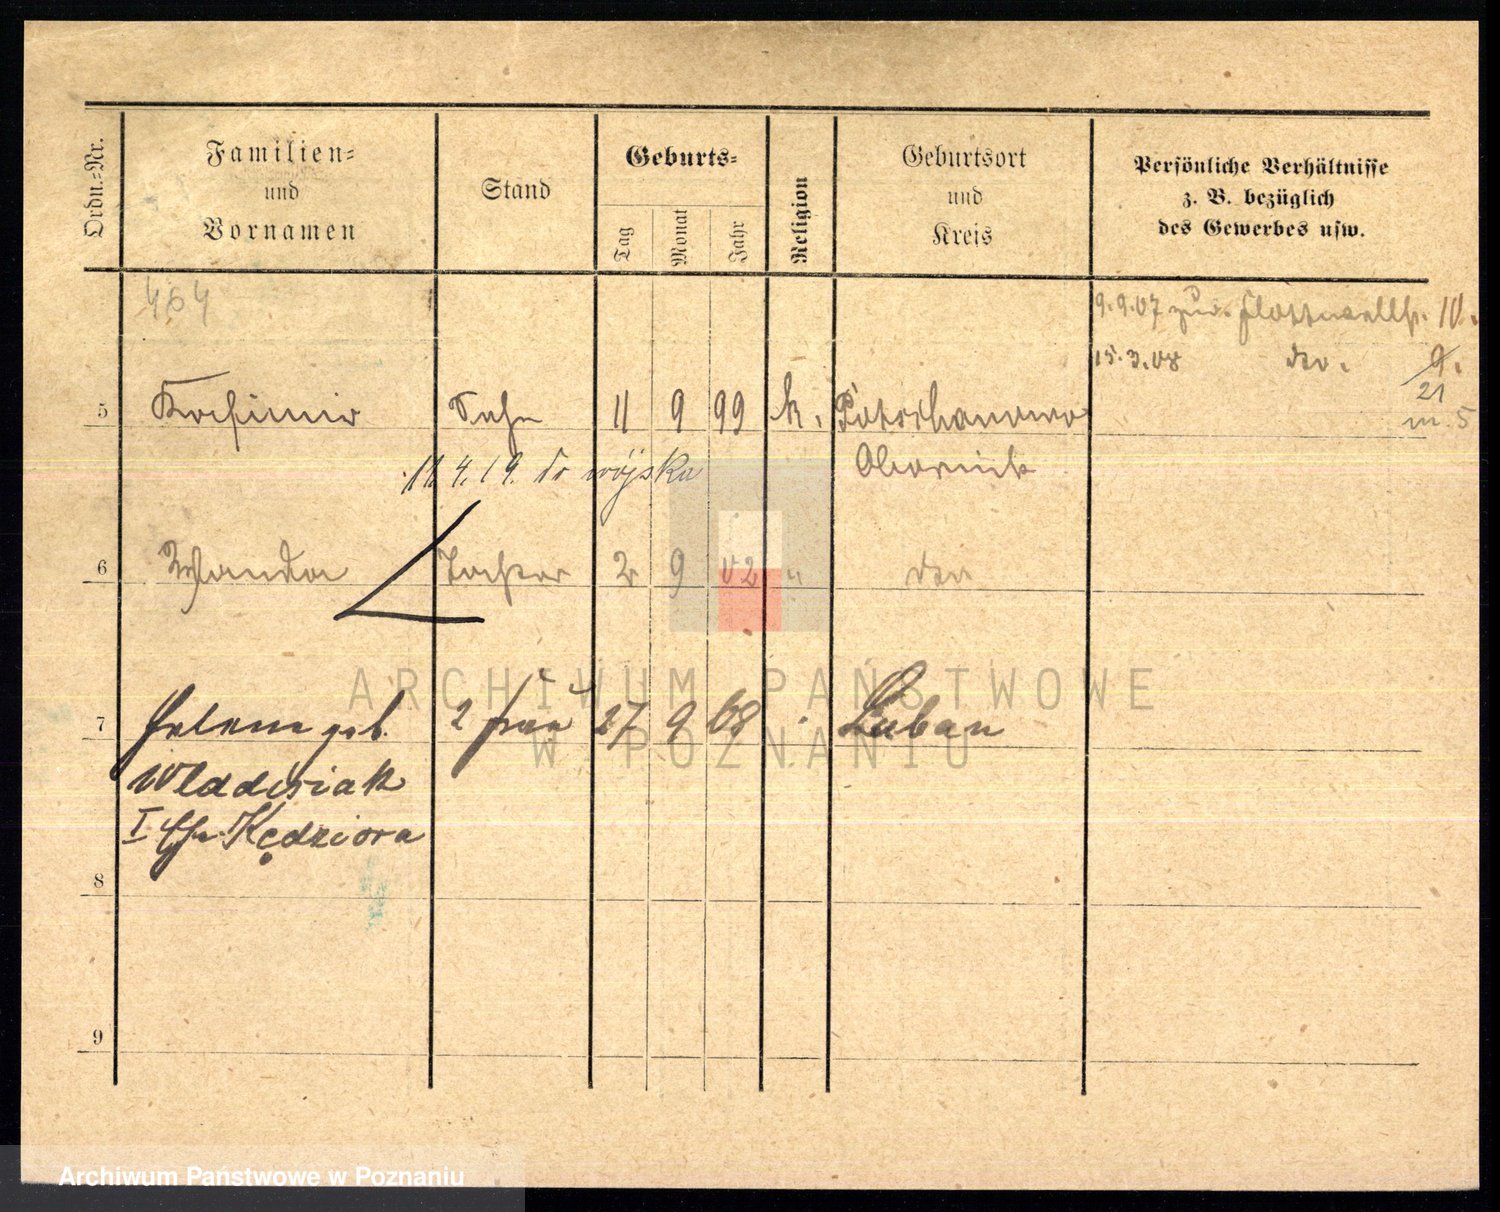 Ordn.=Nr.
Familien=
und
Vornamen
Stand
Geburts=
Tag
Monat
Jahr
Religion
Geburtsort
und
Kreis
Persönliche Verhältnisse
z. B. bezüglich
des Gewerbes usw.
464
9.9.07 zur. Flottwellstr. 10.
15.3.08 do. 9.
21
m. 5
5 Kasimir Sohn 11 9 99 k. Potschanowo
11 4. 19. do wojska Obornik
6 Wanda Tochter 2 9 02 " do
7 Helene geb. 2 Frau 27 9 68 Luban
I Kędziora
8
9
ARCHIWUM PAŃSTWOWE
W POZNANIU
Archiwum Państwowe w Poznaniu